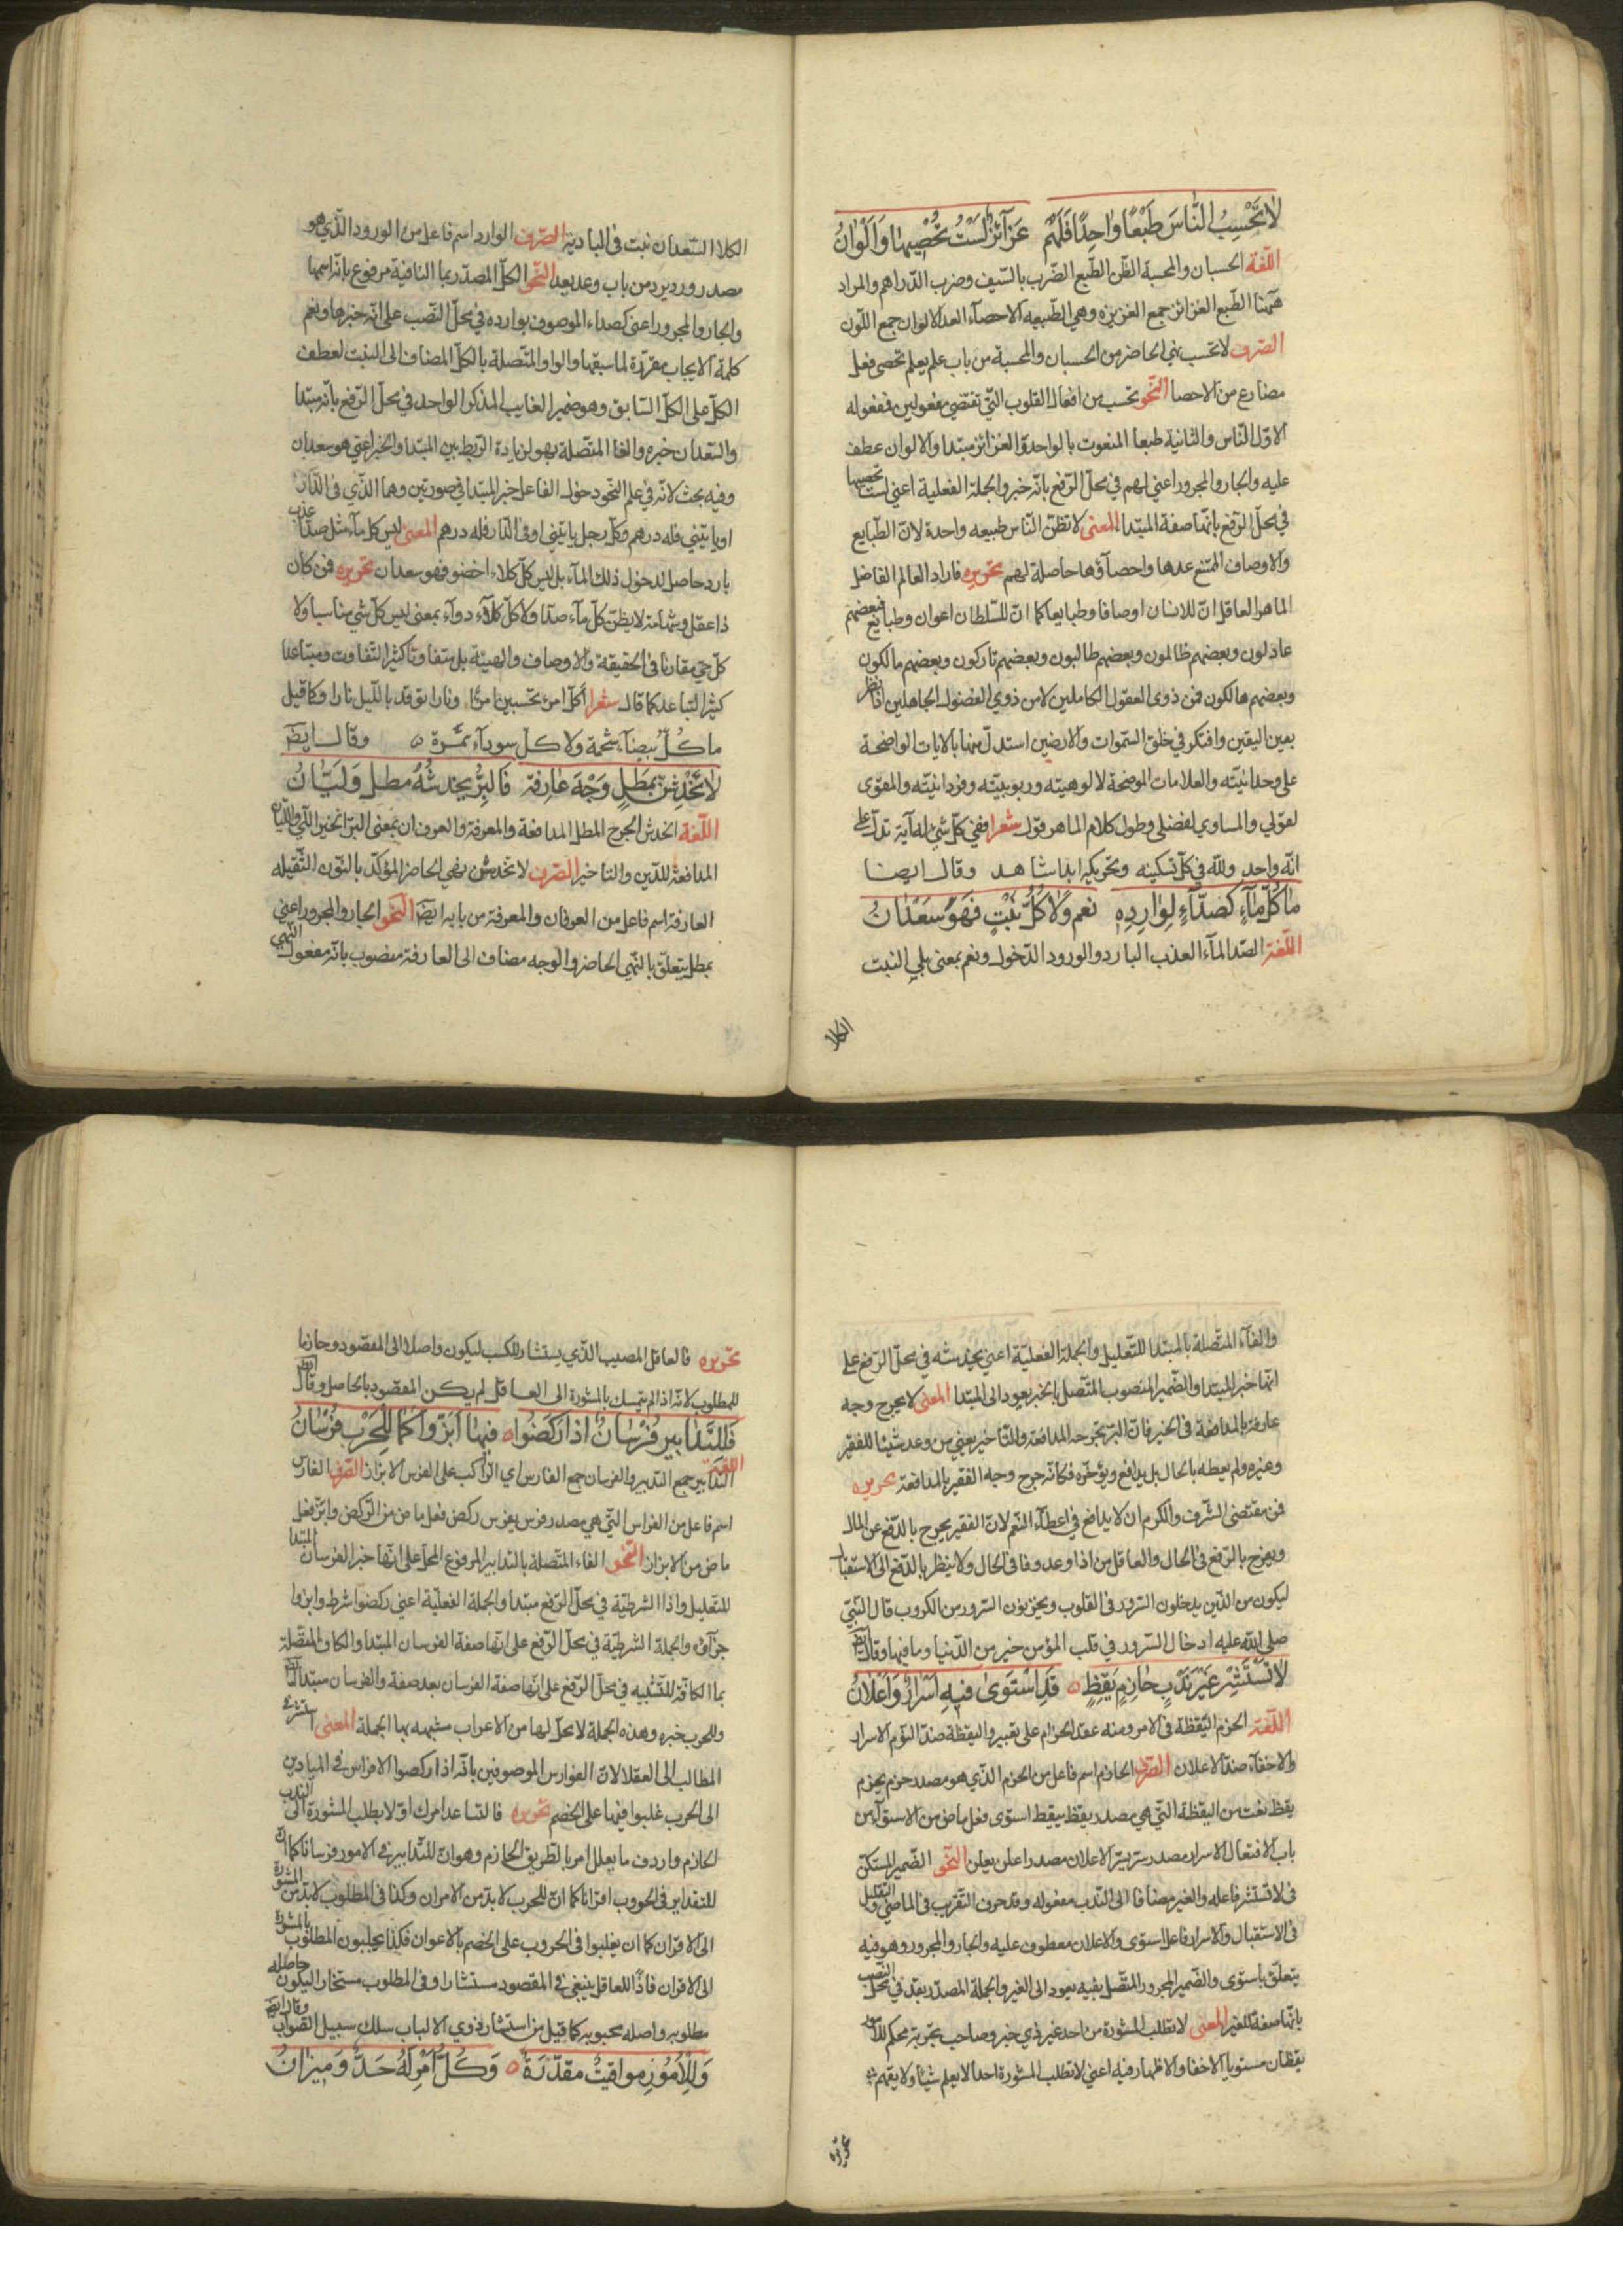 لا تحسب الناس طبعا واحدا فلهم غرائز لست تحصيها والوان
اللغة الحسبان والمحسبة الظن الطبع الضرب بالسيف وضرب الدراهم والمراد
ههنا الطبع الغرائز جمع الغريزه وهي الطبيعه الاحصآء العد الالوان جمع اللون
الصرف لا تحسب نهي الحاضر من الحسبان والمحسبة من باب علم يعلم تحصى فعل
مضارع من الاحصا النحو تحسب من افعال القلوب التي تقتضي مفعولين فمفعوله
الاول الناس والثانية طبعا المنعوت بالواحد والغرائز مبتدا والالوان عطف
عليه والجار والمجرور اعني لهم في محل الرفع بانه خبر والجلة الفعلية اعني لست تحصيها
في محل الرفع بانها صفة المبتدا المعنى لا تظن الناس طبيعه واحدة لان الطبايع
والاوصاف الممتنع عدها واحصآؤها حاصلة لهم تحريره فاراد العالم الفاضل
الماهر العاقل ان للانسان اوصافا وطبايعا كما ان للسلطان اعوان وطبايع فبعضهم
عادلون وبعضهم ظالمون وبعضهم طالبون وبعضهم تاركون وبعضهم مالكون
وبعضهم هالكون فمن ذوى العقول الكاملين لا من ذوي الفضول الجاهلين اذا نظر
بعين اليقين وافتكر في خلق السموات والارضين استدل منها بالايات الواضحة
على وحدانيته والعلامات الموضحة لالوهيته وربوبيته وفردانيته والمقوى
لقولي والمساوي لفضلى وطول كلام الماهر قول شعرا ففي كل شئ له آية تدل على
انه واحد ولله في كل تسكينه وتحريكه ابدا شاهد وقال ايضا
ما كل مآء كصدآء لوارده نعم ولا كل نبت فهو سعدان
اللغة الصدا المآء العذب البارد والورود الدخول ونعم بمعنى بلي النبت
الكلا
الكلا السعدان نبت فى البادية الصرف الوارد اسم فاعل من الورود الذي هو
مصدر ورد يرد من باب وعد يعد النحو الكل المصدر بما النافية مرفوع بانه اسمها
والجار والمجرور اعنى كصداء الموصوف بوارده في محل النصب على انه خبرها ونعم
كلمة الايجاب مقررة لما سبقها والواو المتصلة بالكل المضاف الى النبت لعطف
الكل على الكل السابق وهو ضمير الغايب المذكر الواحد في محل الرفع بانه مبتدا
والسعدان خبره والفا المتصلة بهو لزيادة الربط بين المبتدا والخبر اعني هو سعدان
وفيه بحث لانه في علم النحو دخول الفا على خبر المبتدا في صورتين وهما الذي فى الدار
او ياتيني فله درهم وكل رجل ياتيني او فى الدار فله درهم المعنى ليس كل مآء مثل صدا عذب
بارد حاصل لدخول ذلك المآء بل ليس كل كلاء اخضر فهو سعدان تحريره فمن كان
ذا عقل وشهامة لا يظن كل مآء صدا ولا كل كلآء دوآء بمعنى ليس كل شي مناسبا ولا
كل حي مقارنا فى الحقيقة والاوصاف والهيئة بل متفاوتا كثير التفاوت ومتباعدا
كثير التباعد كما قال شعرا اكل امرء تحسبين امرًا ونارا توقد بالليل نارا وكما قيل
ما كل بيضآء شحمة ولا كل سودآء تمرة ٥ وقال ايضا
لا تخدشن بمطل وجه عارفة فالبر يخدشه مطل وليان
اللغة الخدش الجرح المطل المدافعة والمعرفة والعرفان بمعنى البر الخير اللي والليان
المدافعة للدين والتاخير الصرف لا تخدش نهي الحاضر المؤكد بالنون الثقيله
العارفة اسم فاعل من العرفان والمعرفة من بابه ايضا النحو الجار والمجرور اعني
بمطل يتعلق بالنهي الحاضر والوجه مضاف الى العارفة منصوب بانه مفعول النهي
والفآء المتصلة بالمبتدا للتعليل والجملة الفعلية اعني يخدشه في محل الرفع على
انها خبر المبتدا والضمير المنصوب المتصل بالخبر يعود الى المبتدا المعنى لا يجرح وجه
عارفة بالمدافعة فى الخير فان البر يجرحه المدافعة والتاخير يعني من وعد شيئا للفقير
وغيره ولم يعطه بالحال بل يدافع ويؤخره فكانه جرح وجه الفقير بالمدافعة تحريره
فمن مقتضى الشرف والكرم ان لا يدافع في اعطآء النعم لان الفقير يجرح بالدفع عن المال
ويفرح بالرفع فى الحال والعاقل من اذا وعد وفا فى الحال ولا ينظر بالدفع الى الاستقبال
ليكون من الذين يدخلون السرور فى القلوب ويخرجون السرور من الكروب قال النبي
صلى الله عليه ادخال السرور في قلب المؤمن خير من الدنيا وما فيها وقال ايضا
لا تستشر غير ندب حازم يقظ ٥ قد استوى فيه اسرار واعلان
اللغة الحزم اليقظة فى الامر ومنه عقد الحزام على بقير واليقظة ضد النوم الاسرار
والاخفآء ضد الاعلان الصرف الحازم اسم فاعل من الحزم الذي هو مصدر حزم يحزم
يقظ نعت من اليقظة التي هي مصدر يقظ ييقظ استوى فعل ماض من الاستوآء من
باب الافتعال الاسرار مصدر يسر الاعلان مصدر اعلن يعلن النحو الضمير المستكن
فى لا تستشر فاعله والغير مضافا الى الندب مفعوله وقد حرف التقريب فى الماضي والتقليل
فى الاستقبال والاسرار فاعل استوى والاعلان معطوف عليه والجار والمجرور وهو فيه
يتعلق باستوى والضمير المجرور المتصل بفيه يعود الى الغير والجملة المصدر بقد في محل النصب
بانها صفة للغير المعنى لا تطلب المشورة من احد غير ذي خبر وصاحب تجربة محكم للامور
يقظان مستويا الاخفا والاظهار فيه اعني لا تطلب المشورة احدا لا يعلم شيئا ولا يفهم
تحريره
تحريره فالعاقل المصيب الذي يستشار للكسب ليكون واصلا الى المقصود وحازما
للمطلوب لانه اذا لم يتمسك بالمشورة الى العاقل لم يكن المقصود بالحاصل وقال ايضا
فللتدابير فرسان اذا ركضوا ٥ فيها ابروا كما للحرب فرسان
اللغة التدابير جمع التدبير والفرسان جمع الفارس اي الراكب على الفرس الابزاز الصرف الفارس
اسم فاعل من الفراس التي هي مصدر فرس يفرس ركض فعل ماض من الركض وابر فعل
ماض من الابزاز النحو الفاء المتصلة بالتدابير المرفوع المحل على انها خبر الفرسان المبتدا
للتعليل واذا الشرطية في محل الرفع مبتدا والجملة الفعلية اعني ركضوا شرط وابروا
جزآؤه والجملة الشرطية في محل الرفع على انها صفة الفرسان المبتدا والكاف المتصلة
بما الكافة للتشبيه في محل الرفع على انها صفة الفرسان بعد صفة والفرسان مبتدا ايضا
وللحرب خبره وهذه الجملة لا محل لها من الاعراب مشبهه بها الجملة المعنى استشر
المطالب الى العقلا لان الفوارس الموصوفين بانه اذا ركضوا الافراس في الميادين
الى الحرب غلبوا فيها على الخصم تحريره فالشاعد امرك اولا بطلب المشورة الى الندب
الحازم واردف ما يعلل امر بالطريق الجازم وهو ان للتدابير في الامور فرسانا كما ان
للتقدير فى الحروب اقرانا كما ان للحرب لابد من الاقران وكذا فى المطلوب لابد من المشورة
الى الاقران كما ان يغلبوا فى الحروب على الخصم بالاعوان فكذا يجلبون المطلوب بالمشورة
الى الاقران فاذًا للعاقل ينبغي في المقصود مستشارا وفى المطلوب مستخارا ليكون حاصله
مطلوبه واصله محبوبه كما قيل من استشار ذوي الالباب سلك سبيل الصواب وقال ايضا
وللامور مواقيت مقدرة ٥ وكل امر له حد وميزان